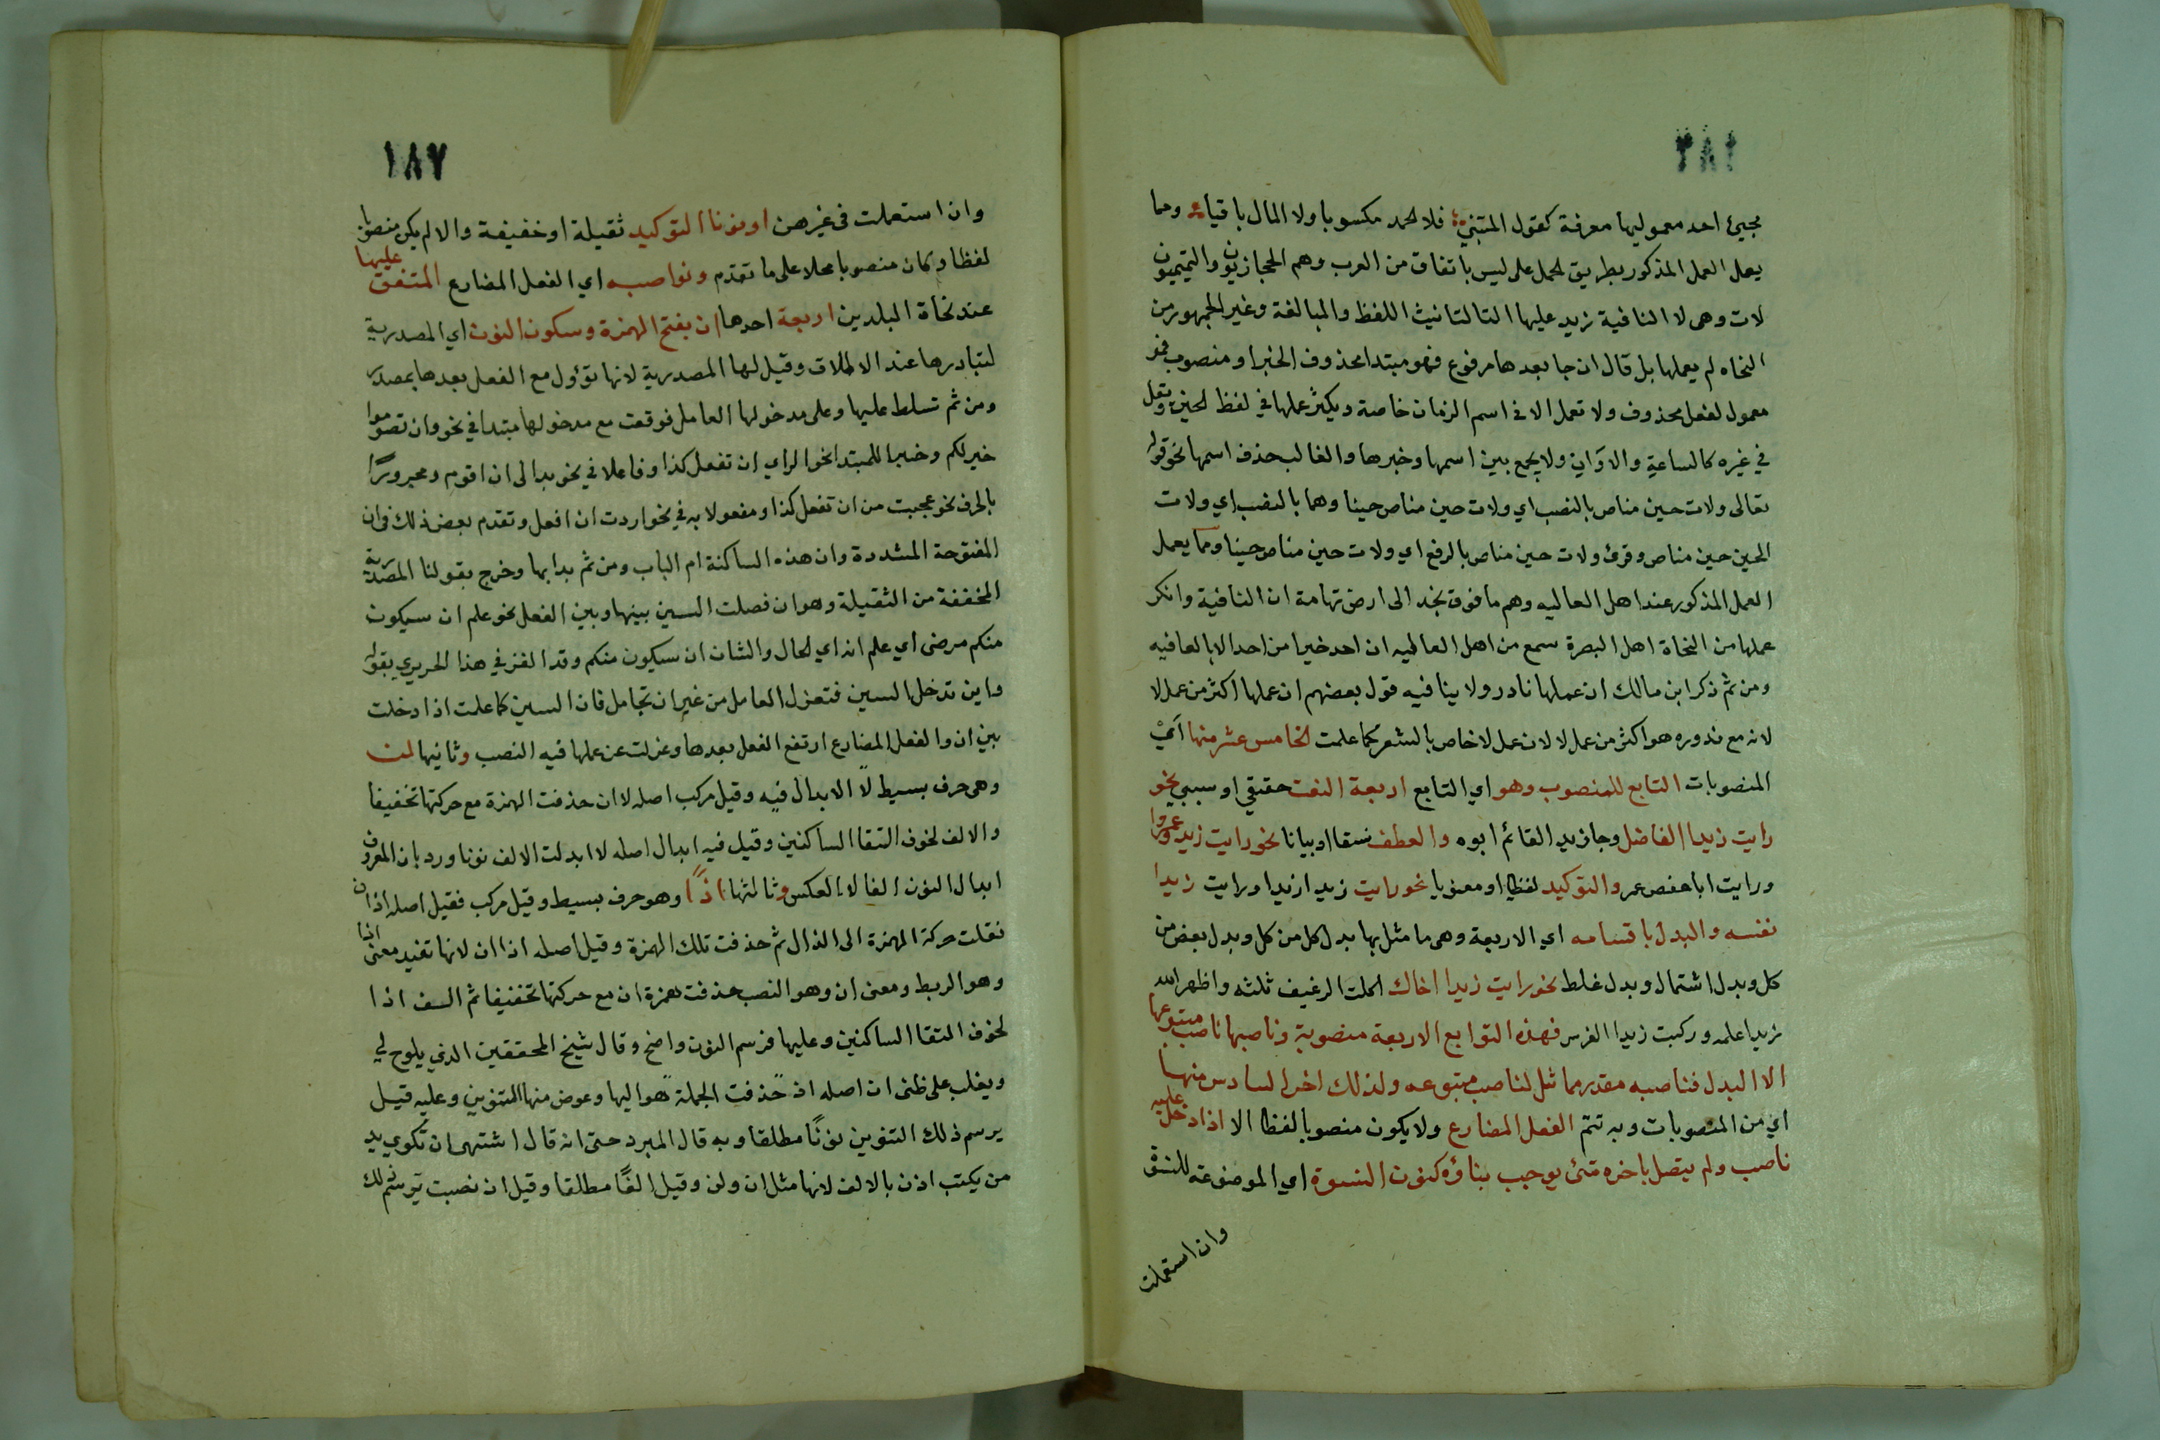 مجيئ احد معموليها معرفة كقول المتنبي فلا الحمد مكسوبا ولا المال باقيا وما
يعمل العمل المذكور بطريق الحمل على ليس باتفاق من العرب وهم الحجازيون والتميميون
لات وهى لا النافية زيد عليها التا لتانيث اللفظ والمبالغة وغير الجمهور من
النحاه لم يعملها بل قال ان جا بعدها مرفوع فهو مبتدا محذوف الخبر او منصوب فهو
معمول لفعل محذوف ولا تعمل الا في اسم الزمان خاصة ويكثر عملها في لفظ الحين ويقل
في غيره كالساعة والاوَان ولا يجمع بين اسمها وخبرها والغالب حذف اسمها نحو قوله
تعالى ولات حين مناص بالنصب اي ولات حين مناص حينا وهما بالنصب اي ولات
الحين حين مناص وقرئ ولات حين مناص بالرفع اي ولات حين مناص حينا ومما يعمل
العمل المذكور عند اهل العاليه وهم ما فوق نجد الى ارض تهامة ان النافية وانكر
عملها من النحاة اهل البصرة سمع من اهل العاليه ان احد خيرا من احد الا بالعافيه
ومن ثم ذكر ابن مالك ان عملها نادر ولا ينافيه قول بعضهم ان عملها اكثر من عمل لا
لانه مع ندوره هو اكثر من عمل لا لان عمل لا خاص بالشعر كما علمت الخامس عشر منها اَيْ
المنصوبات التابع للمنصوب وهو اي التابع اربعة النعت حقيقي او سببي نحو
رايت زيدا الفاضل وجا زيد القائم ابوه والعطف نسقا او بيانا نحو رايت زيد وعمروا
ورايت ابا حفص عمر والتوكيد لفظيا او معنويا نحو رايت زيدا زيدا ورايت زيدا
نفسه والبدل باقسامه اي الاربعة وهى ما مثل بها بدل كل من كل وبدل بعض من
كل وبدل اشتمال وبدل غلط نحو رايت زيدا اخاك اكلت الرغيف ثلثه واظهر الله
زيدا علمه وركبت زيدا الفرس فهذه التوابع الاربعة منصوبة وناصبها ناصب متبوعها
الا البدل فناصبه مقدر مماثل لناصب متبوعه ولذلك اخر السادس منها
اي من المنصوبات وبه تتم الفعل المضارع ولا يكون منصوبا لفظا الا اذا دخل عليه
ناصب ولم يتصل باخره شئ يوجب بناؤه كنون النسوة اي الموضوعة للنسوة
وان استعملت
١٨٧
وان استعملت فى غيرهن او نونا التوكيد ثقيلة او خفيفة والا لم يكن منصوبا
لفظا وكان منصوبا محلا على ما تقدم ونواصبه اي الفعل المضارع المتفق عليها
عند نحاة البلدين اربعة احدها ان بفتح الهمزة وسكون النون اي المصدرية
لتبادرها عند الاطلاق وقيل لها المصدرية لانها تؤول مع الفعل بعدها بمصدر
ومن ثم تسلط عليها وعلى مدخولها العامل فوقعت مع مدخولها مبتدا في نحو وان تصوموا
خير لكم وخبرا للمبتدا نحو الراي ان تفعل كذا وفاعلا في نحو بدا لى ان اقوم ومجرورًا
بالحرف نحو عجبت من ان تفعل كذا ومفعولا به في نحو اردت ان افعل وتقدم بعض ذلك فى ان
المفتوحة المشددة وان هذه الساكنة ام الباب ومن ثم بدا بها وخرج بقولنا المصدرية
المخففة من الثقيلة وهو ان فصلت السين بينها وبين الفعل نحو علم ان سيكون
منكم مرضى اي علم انه اي الحال والشان ان سيكون منكم وقد الغز في هذا الحريري بقوله
واين تدخل السين فتعزل العامل من غير ان تجامل فان السين كما علمت اذا دخلت
بين ان والفعل المضارع ارتفع الفعل بعدها وعزلت عن عملها فيه النصب وثانيها لن
وهى حرف بسيط لا ابدال فيه وقيل مركب اصله لا ان حذفت الهمزة مع حركتها تخفيفا
والالف لخوف التقا الساكنين وقيل فيه ابدال اصله لا ابدلت الالف نونا ورد بان المعروف
ابدال النون الفا لا العكس وثالثها اذًا وهو حرف بسيط وقيل مركب فقيل اصله اذ ان
نقلت حركة الهمزة الى الذال ثم حذفت تلك الهمزة وقيل اصله اذا ان لانها تفيد معنى اذا
وهو الربط ومعنى ان وهو النصب حذفت همزة ان مع حركتها تخفيفا ثم الف اذا
لخوف التقا الساكنين وعليها فرسم النون واضح وقال شيخ المحققين الذي يلوح لي
ويغلب على ظنى ان اصله اذ حذفت الجملة اليها وعوض منها التنوين وعليه قيل
يرسم ذلك التنوين نونًا مطلقا وبه قال المبرد حتى انه قال اشتهى ان تكوي يد
من يكتب اذن بالالف لانها مثل ان ولن وقيل الفًا مطلقا وقيل ان نصبت